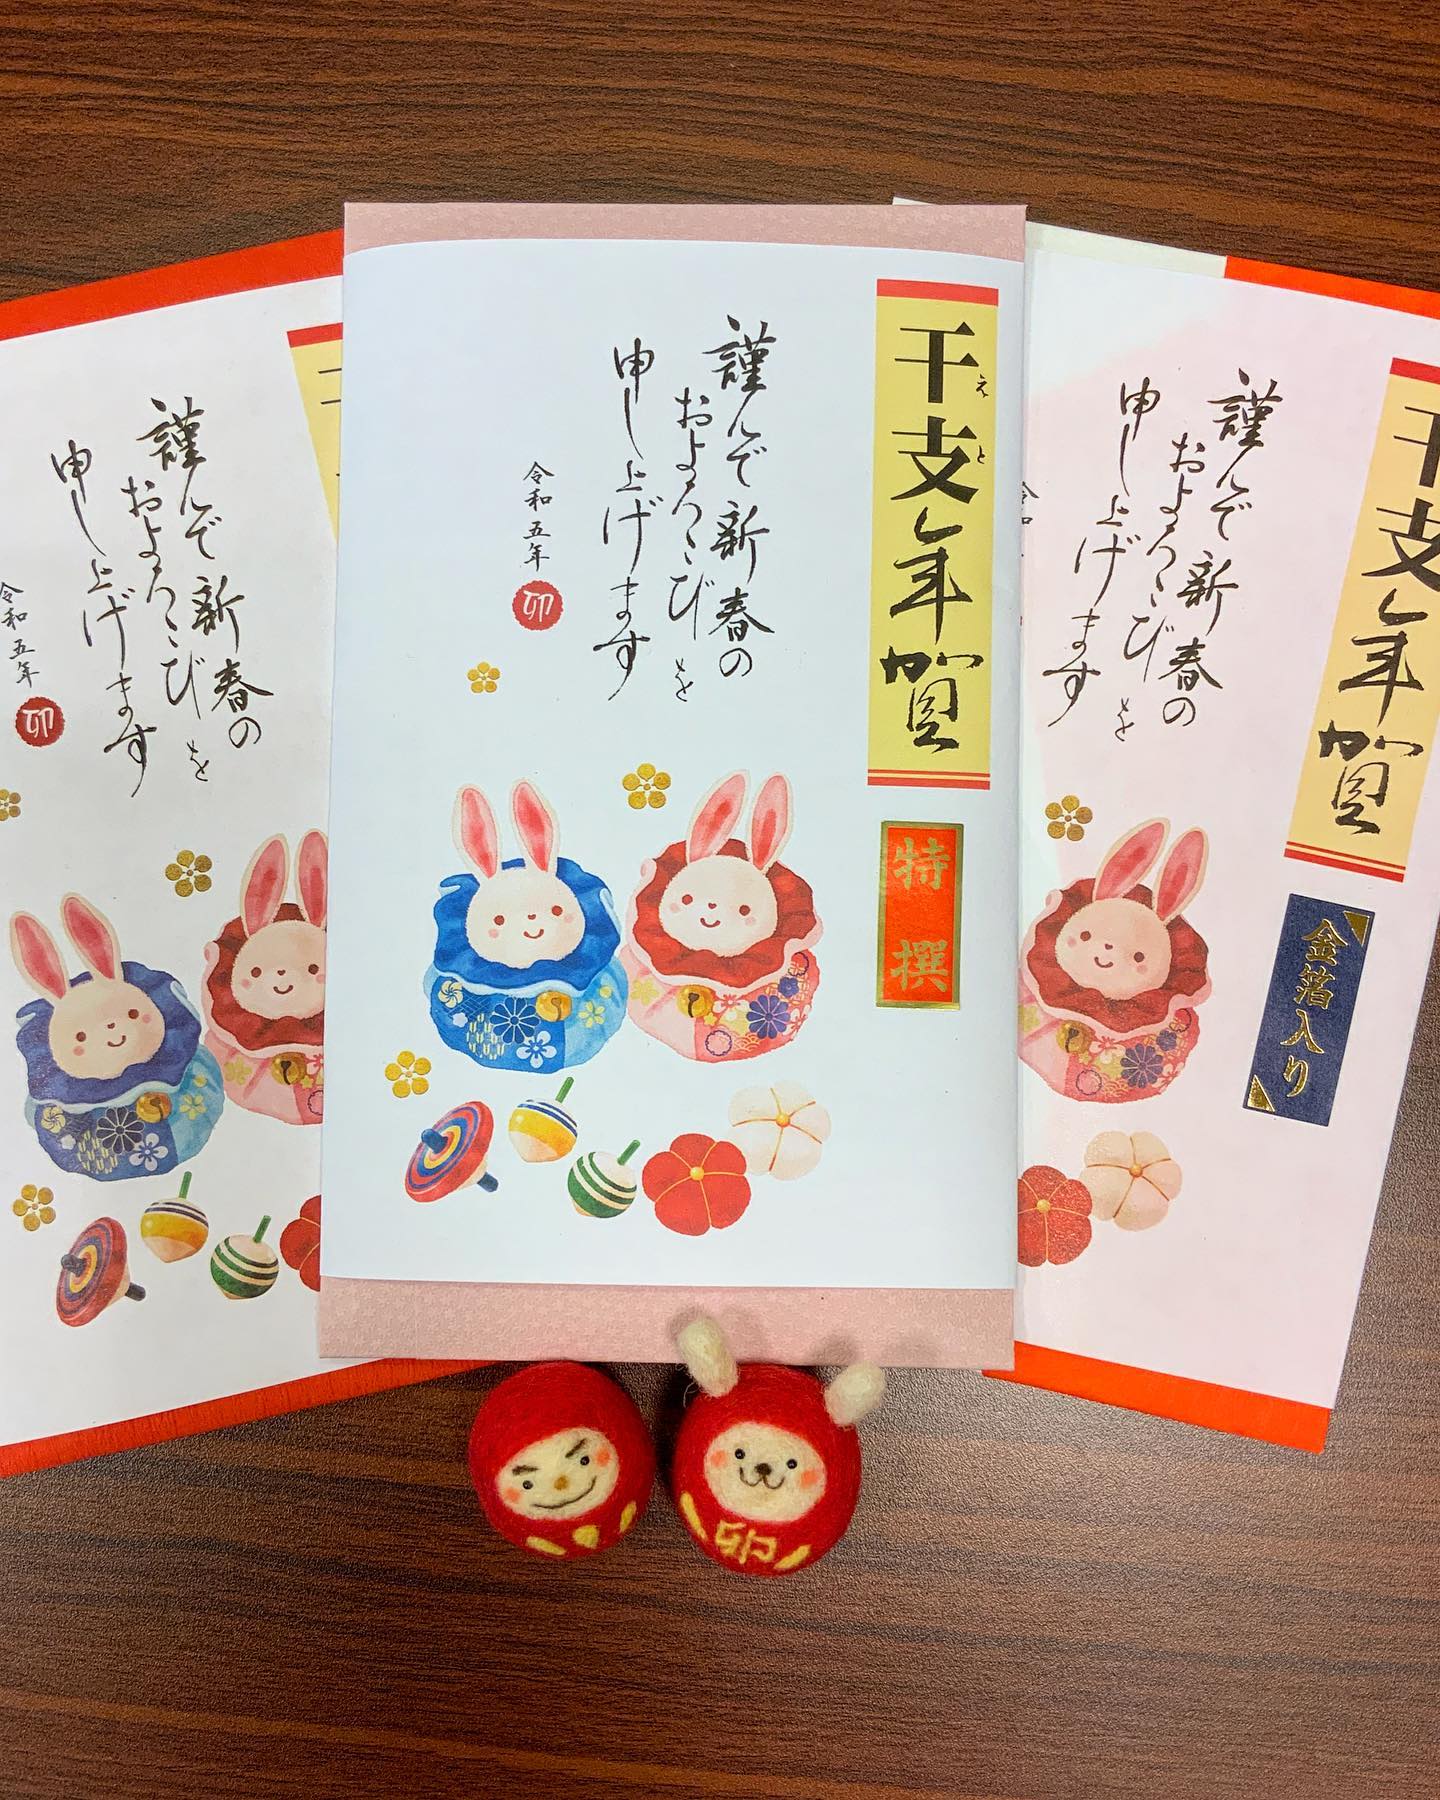 謹んで新春の
およろこびを
申し上げます
令和五年
卯
干支
謹んで新春の
およろこびを
申し上げます
令和五年
卯
干支年賀
えと
特撰
謹んで新春の
およろこびを
申し上げます
令和
干支年賀
金箔入り
卯